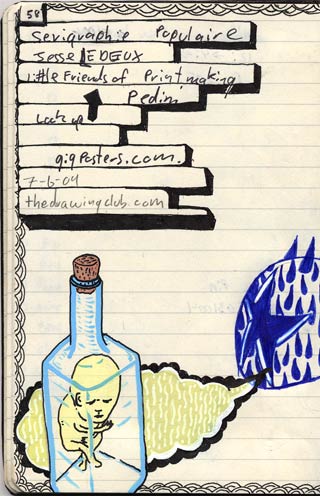 58
Serigraphie Populaire
Jesse LEDEUX
little Friends of Printmaking
Pedini
Look up
gigposters.com.
7-6-04
thedrawingclub.com